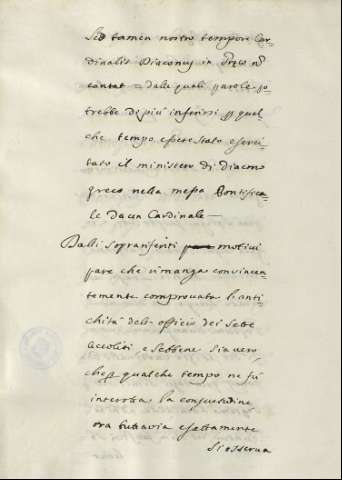 Sed tamen nostro tempore Car=
dinalis Diaconus in
cantat = dalle quali parole po
trebbe di più inferirsi qual
che tempo essere stato eserci=
tato il ministero di diacono
greco nella messa Pontifica=
le da un Cardinale =
Dalli soprariferiti motivi
pare che rimanga convincen
temente comprovata l'anti
chità dell officio dei Sette
Accoliti e sebbene sia vero,
che qualche tempo ne fù
interotta la consuetudine
ora tuttavia esattamente
si osserva